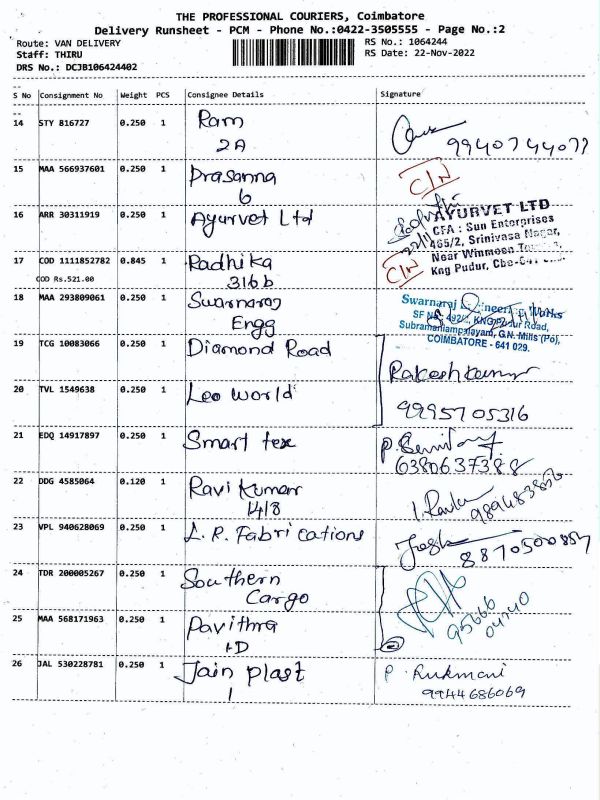 THE PROFESSIONAL COURIERS, Coimbatore
Delivery Runsheet - PCM - Phone No.:0422-3505555 - Page No.:2
Route: VAN DELIVERY RS No.: 1064244
Staff: THIRU RS Date: 22-Nov-2022
DRS No.: DCJB106424402
S No Consignment No Weight PCS Consignee Details Signature
14 STY 816727 0.250 1 Ram
2A
9940744077
15 MAA 566937601 0.250 1 Prasanna C/N
6
16 ARR 30311919 0.250 1 Ayurvet Ltd
AYURVET LTD
CFA : Sun Enterprises
465/2, Srinivasa Nagar,
Near Winmoen
Kng Pudur, Cbe-641
17 COD 1111852782 0.845 1 Radhika C/N
COD Rs.521.00 316b
18 MAA 293809061 0.250 1 Swarnaraj
Engg
Swarnaraj Engineering Works
SF No. 492/, KNG Pudur Road,
Subramaniampalayam, G.N. Mills (Po),
COIMBATORE - 641 029.
19 TCG 10083066 0.250 1 Diamond Road
Rakesh kumar
20 TVL 1549638 0.250 1 Leo world
9995705316
21 EDQ 14917897 0.250 1 Smart tex
6380637388
22 DDG 4585064 0.120 1 Ravi Kumar
14/8
23 VPL 940628069 0.250 1 L.R. Fabrications
24 TDR 200005267 0.250 1 Southern
Cargo
95666
04140
25 MAA 568171963 0.250 1 Pavithra
1D
26 JAL 530228781 0.250 1 Jain plast P. Rukmani
1 9944686069